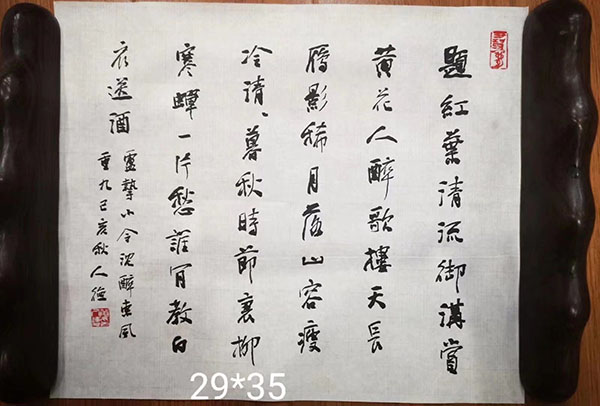 題紅葉清流御溝賞
黄花人醉歌樓天長
鴈影稀月落山容瘦
冷清、暮秋時節衰柳
寒蟬一片愁誰肯教白
衣送酒
盧摯小令沈醉東風
重九己亥秋人
29*35